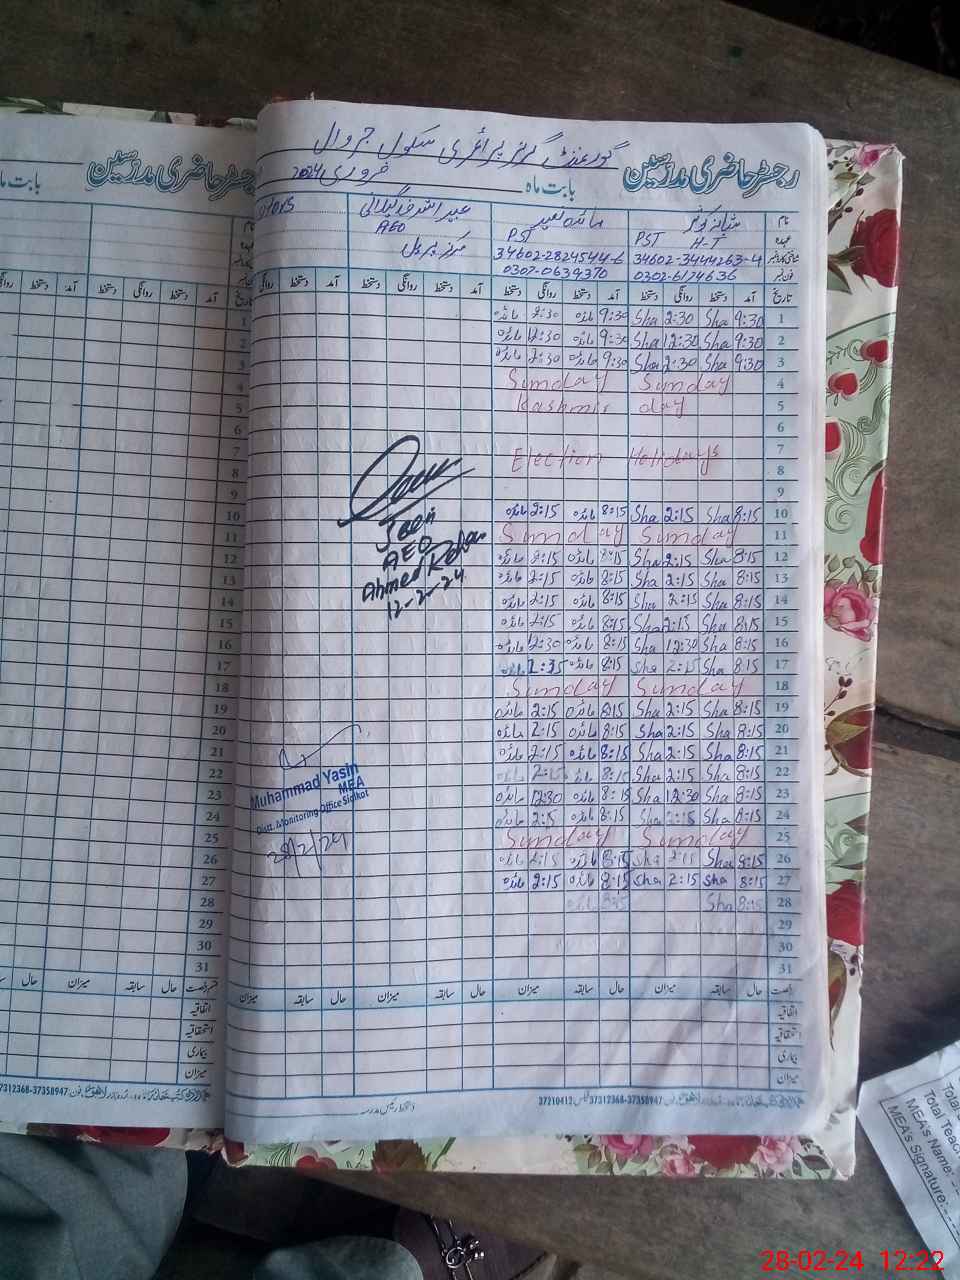 گورنمنٹ گرلز پرائمری سکول جروال
رجسٹر حاضری مدرسین بابت ماہ فروری 2024
نام شبانہ کوثر مائدہ سعید
عہدہ PST H-T PST AEO
34602-3444263-4 34602-2824544-6
فون نمبر 0302-6174636 0307-0639370
تاریخ آمد دستخط روانگی دستخط آمد دستخط روانگی دستخط آمد دستخط روانگی دستخط آمد دستخط روانگی
1 9:30 Sha 2:30 Sha 9:30 مائدہ 2:30 مائدہ
2 9:30 Sha 12:30 Sha 9:30 مائدہ 12:30 مائدہ
3 9:30 Sha 2:30 Sha 9:30 مائدہ 2:30 مائدہ
4 Sunday Sunday
5 Kashmir day
6
7 Election Holidays
8
9
10 8:15 Sha 2:15 Sha 8:15 مائدہ 2:15 مائدہ
11 Sunday Sunday
12 8:15 Sha 2:15 Sha 8:15 مائدہ 2:15 مائدہ
13 8:15 Sha 2:15 Sha 8:15 مائدہ 2:15 مائدہ
14 8:15 Sha 2:15 Sha 8:15 مائدہ 2:15 مائدہ
15 8:15 Sha 2:15 Sha 8:15 مائدہ 2:15 مائدہ
16 8:15 Sha 12:30 Sha 8:15 مائدہ 12:30 مائدہ
17 8:15 Sha 2:15 Sha 8:15 مائدہ
18 Sunday Sunday
19 8:15 Sha 2:15 Sha 8:15 مائدہ 2:15 مائدہ
20 8:15 Sha 2:15 Sha 8:15 مائدہ 2:15 مائدہ
21 8:15 Sha 2:15 Sha 8:15 مائدہ 2:15 مائدہ
22 8:15 Sha 2:15 Sha 8:15 مائدہ 2:15 مائدہ
23 8:15 Sha 12:30 Sha 8:15 مائدہ 12:30 مائدہ
24 8:15 Sha 2:15 Sha 8:15 مائدہ 2:15 مائدہ
25 Sunday Sunday
26 8:15 Sha 2:15 Sha 8:15 مائدہ 2:15 مائدہ
27 8:15 Sha 2:15 Sha 8:15 مائدہ 2:15 مائدہ
28 8:15 Sha 8:15 مائدہ
29
30
31
Seen
AEO
Ahmed Rehan
12-2-24
Muhammad Yasin
MEA
Distt. Monitoring Office Sialkot
28/2/24
حال سابقہ میزان حال سابقہ میزان حال سابقہ میزان حال سابقہ میزان
اتفاقیہ
استحقاقیہ
بیماری
میزان
37312368-37358947 37210412
دستخط رئیس مدرسہ
رجسٹر حاضری مدرسین بابت ماہ
Total Teac
MEA's Name:
MEA's Signature:
28-02-24 12:22